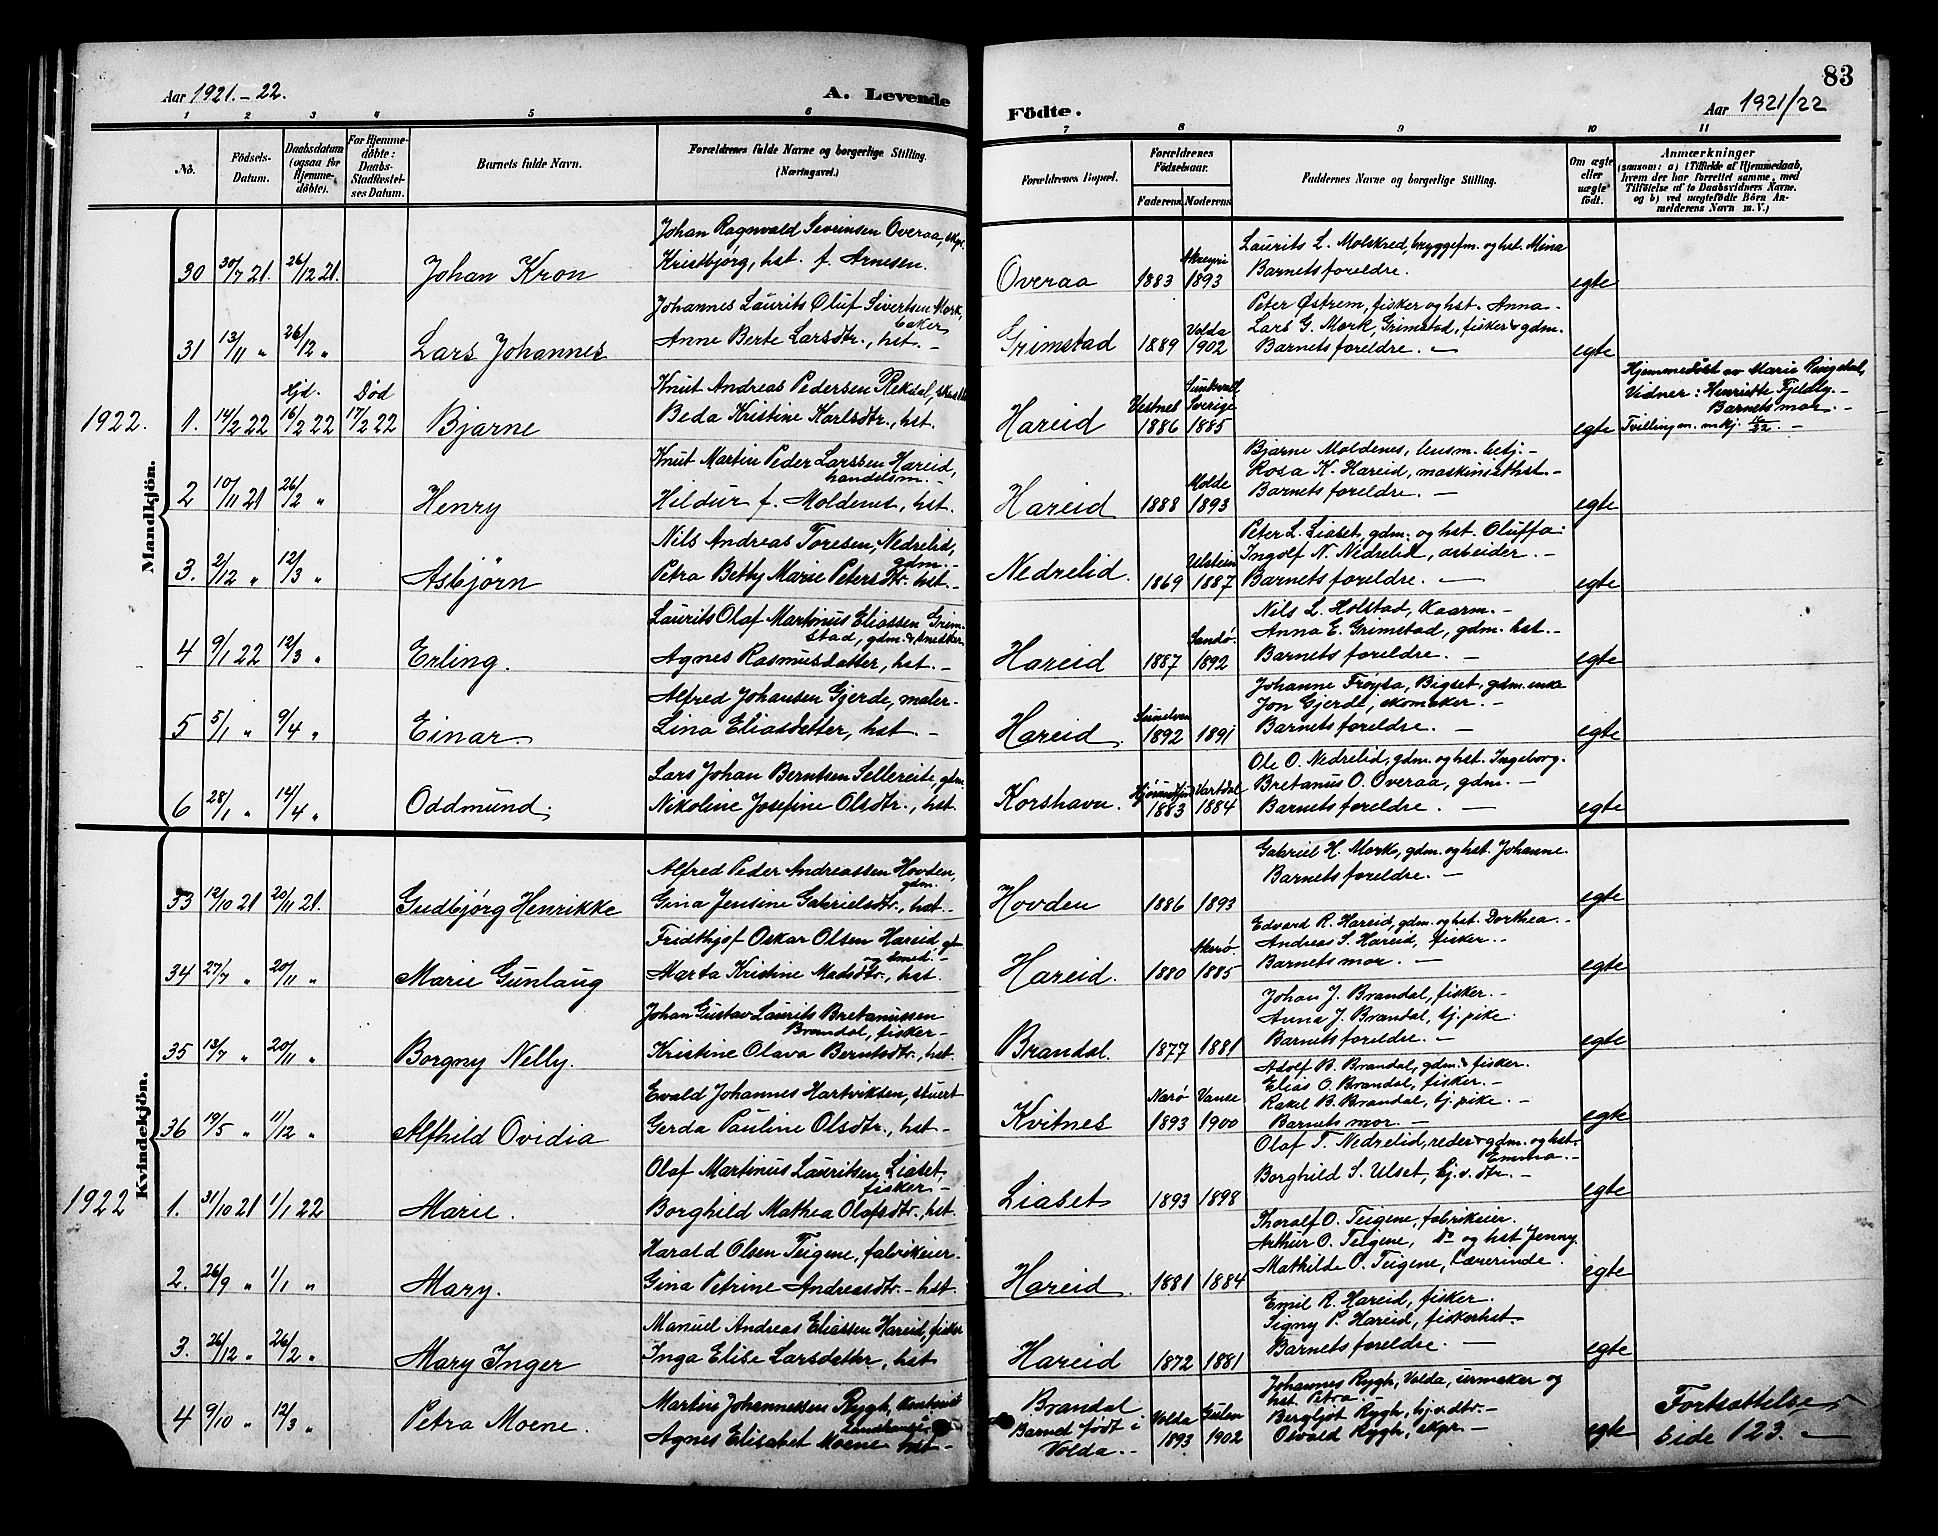 Aar 1921.-22.
A. Levende
Födte.
Aar 1921/22
83
1 2 3 4 5 6 7 8 9 10 11
No.
Födsels-Datum.
Daabsdatum (ogsaa for Hjemmedöbte).
For Hjemmedöbte: Daabs-Stadfæstelses Datum.
Barnets fulde Navn.
Forældrenes fulde Navne og borgerlige Stilling. (Næringsvei.)
Forældrenes Bopæl.
Forældrenes Födselsaar.
Faderens. Moderens.
Faddernes Navne og borgerlige Stilling.
Om ægte eller uægte födt.
Anmærkninger
(saasom: a) i Tilfælde af Hjemmedaab, hvem der har forrettet samme, med Tilföielse af to Daabsvidners Navne. og b) ved uægtefödte Börn Anmelderens Navn m. V.)
Mandkjön.
30 30/7 21. 26/12 21. Johan Kron
Johan Ragnvald Sevrinsen Overaa, skpr.
Kristbjørg, hst. f. Arnesen.
Overaa 1883 1893
Laurits L. Molskred, bryggefm. og hst. Mina
Barnets foreldre.
egte
31 13/11 " 26/12 " Lars Johannes
Johannes Laurits Oluf Sivertsen Mork, baker
Anne Berte Larsdtr., hst. -
Grimstad 1889 Volda 1902
Peter Østrem, fisker og hst. Anna -
Lars G. Mork, Grimstad, fisker & gdm.
Barnets foreldre. -
egte
1922. 1. 14/2 22 Hjd. 16/2 22 Død 17/2 22 Bjarne
Knut Andreas Pedersen Reksdal,
Beda Kristine Karlsdtr., hst.
Hareid Vestnes 1886 Sundsvall Sverige 1885
egte
Hjemmedöbt av Marie Ringdal,
Vidner: Henrikke Fjeldby. -
Barnets mor. -
Tvilling
2 10/11 21 26/2 " Henry
Knut Martin Peder Larssen Hareid, handelsm. -
Hildur f. Moldenes, hst.
Hareid 1888 Molde 1893
Bjarne Moldenes, lensm. betj. -
Rosa K. Hareid, maskinisthst. -
Barnets foreldre. -
egte
3. 2/12 " 12/3 " Asbjörn
Nils Andreas Toresen, Nedrelid, gdm. -
Petra Betty Marie Petersdtr. hst. -
Nedrelid. 1869 Ulstein 1887
Peter L. Liaset, gdm. og hst. Oluffa -
Ingolf N. Nedrelid, arbeider. -
Barnets foreldre. -
egte
4 9/1 22 12/3 " Erling.
Laurits Olaf Martinus Eliassen Grimstad, gdm. & snedker
Agnes Rasmusdatter, hst. -
Hareid 1887 Sandø. 1892
Nils L. Holstad, kaarm. -
Anna E. Grimstad, gdm. hst. -
Barnets foreldre. -
egte
5 5/1 " 9/4 " Einar.
Alfred Johansen Gjerde, maler -
Lina Eliasdatter, hst. -
Hareid Sunelven 1892 1891
Johanne Frøysa, Bigset, gdm. enke
Jon Gjerde, skomaker. -
Barnets foreldre. -
egte
6 28/1 " 14/4 " Oddmund.
Lars Johan Berntsen Sellereite, gdm.
Nikoline Josefine Olsdtr., hst.
Korshavn. Hjørundfjord 1883 Vartdal 1884
Ole O. Nedrelid, gdm. og hst. Ingeborg.
Bretanus O. Overaa, gdm. -
Barnets foreldre. -
egte
Kvindekjön.
33 12/10 21 20/11 21. Gudbjörg Henrikke
Alfred Peder Andreassen Hovden, gdm.
Gina Jensine Gabrielsdtr., hst. -
Hovden 1886 1893
Gabriel H. Mork, gdm. og hst. Johanne
Barnets foreldre. -
egte
34 27/7 " 20/11 " Marie Gunlaug
Fridthjof Oskar Olsen Hareid, smed. -
Marta Kristine Madsdtr., hst.
Hareid. 1880 1885
Edvard R. Hareid, gdm. og hst. Dorthea. -
Andreas S. Hareid, fisker. -
Barnets mor. -
egte
35 13/7 " 20/11 " Borgny Nelly.
Johan Gustav Laurits Bretanussen Brandal, fisker -
Kristine Olava Berntsdtr., hst.
Brandal. 1877 1881
Johan J. Brandal, fisker. -
Anna J. Brandal, tj. pike.
Barnets foreldre. -
egte
36 19/5 " 11/12 " Alfhild Ovidia
Evald Johannes Hartviksen, stuert
Gerda Pauline Olsdtr., hst -
Kvitnes 1893 Vanse 1900
Adolf B. Brandal, gdm. & fisker.
Elias O. Brandal, fisker. -
Rakel B. Brandal, tj. pike. -
Barnets mor. -
egte
1922 1. 31/10 21 1/1 22 Marie.
Olaf Martinus Lauritsen Liaset, fisker -
Borghild Mathea Olafsdtr., hst.
Liaset 1893 1898
Olaf T. Nedrelid, reder & gdm. og hst. Emma. -
Borghild S. Ulset, hj. v. dtr. -
egte
2. 26/9 " 1/1 " Mary.
Harald Olsen Teigene, fabrikeier -
Gina Petrine Andreasdtr. - hst
Hareid. 1881 1884
Thoralf O. Teigene, fabrikeier.
Arthur O. Teigene, do og hst Jenny.
Mathilde O. Teigene, Lærerinde.
egte
3. 26/12 " 26/2 " Mary Inger
Manuel Andreas Eliassen Hareid, fisker
Inga Elise Larsdatter, hst
Hareid 1872 1881
Emil R. Hareid, fisker.
Signy P. Hareid, fiskerhst.
Barnets foreldre. -
egte
4 9/10 " 12/3 " Petra Moene.
Martin Johannessen Rygh,
Agnes Elisabet Moene hst -
Brandal
Barnet født i Volda. -
Volda 1893 Gulen 1902
Johannes Rygh, Volda, urmaker og hst. Petra.
Bergljot Rygh, hj. v. dtr. -
Osvald Rygh, skpr. -
egte
Fortsættelse
Side 123. -